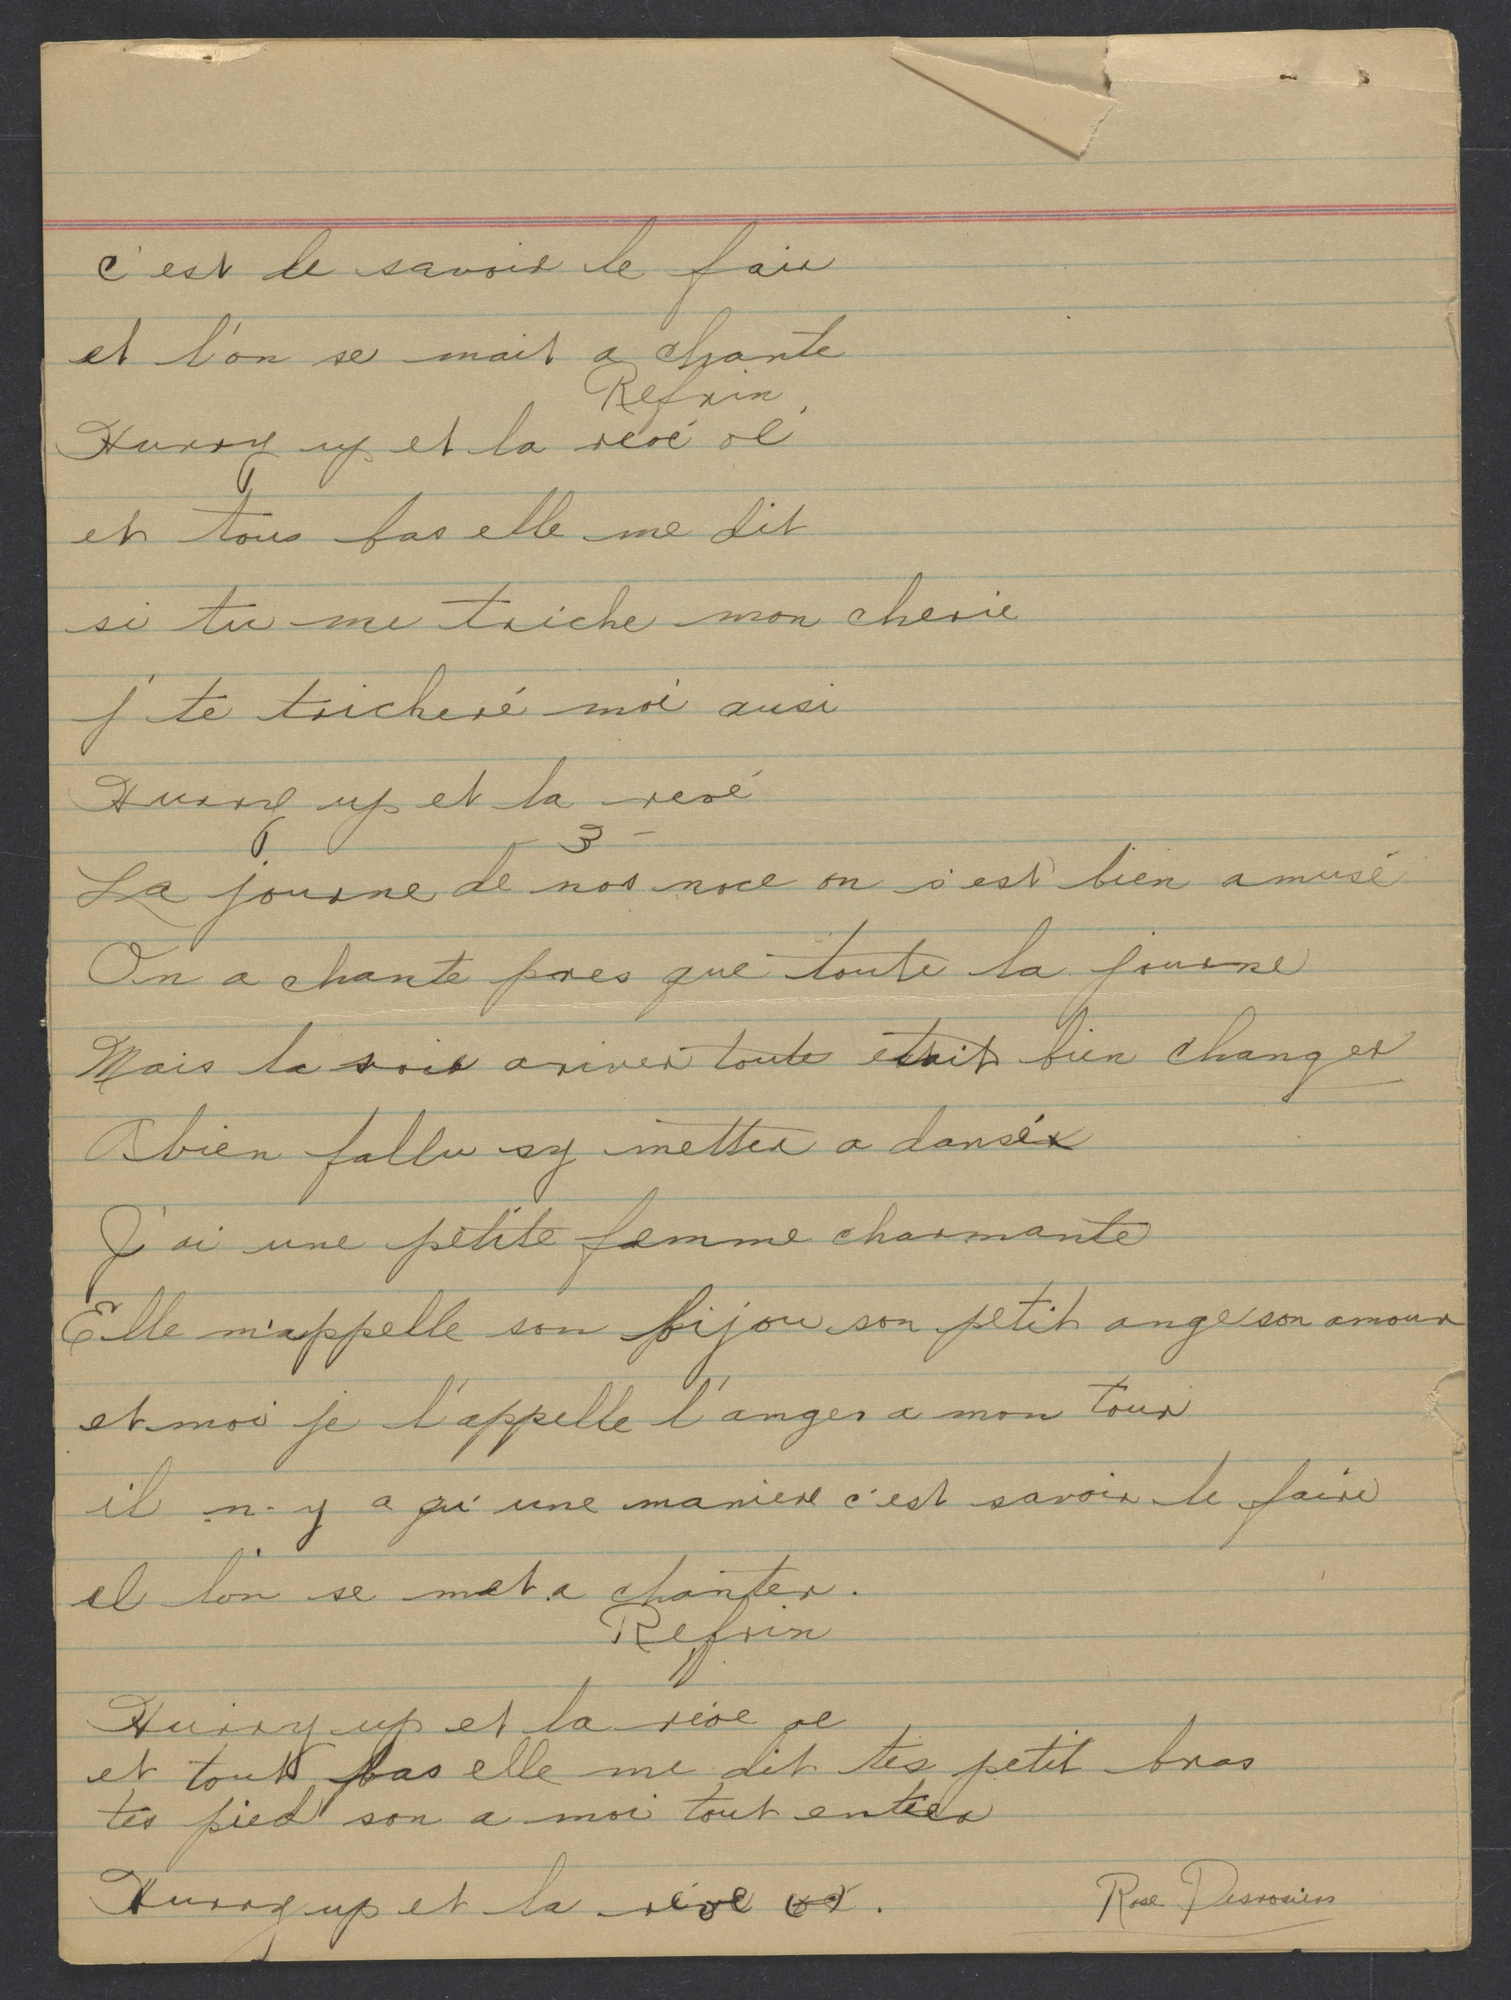 c'est de savoir le fair
et l'on se mait a chante
Refrin
Hurry up et la revé ol'
et tous bas elle me dit
si tu me triche mon cherie
j' te tricheré moi ausi
Hurry up et la revé
3 –
La journe de nos noce on s'est bien amusé
On a chante pres que toute la journe
Mais la soir ariver toute était bien changer
A bien fallu sy metter a danser
J'ai une petite femme charmante
Elle m'appelle son bijou son petit ange son amour
et moi je l'appelle l'anger a mon tour
il n-y a qu'une maniere c'est savoir le faire
el l'on se met a chanter.
Refrin
Hurry up et la réve ol
et tout bas elle me dit tes petit bras
tes pied son a moi tout entier
Hurry up et la réve ol.
Rose Desrosiers